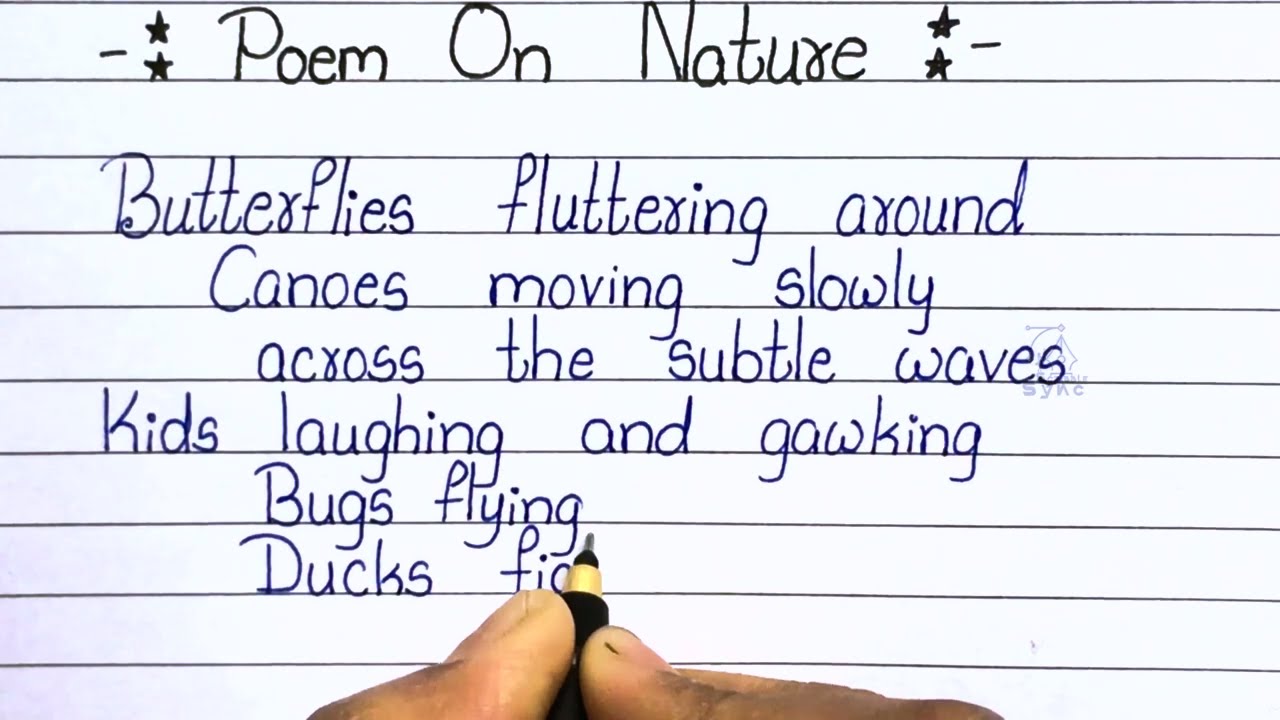 -: Poem On Nature :-
Butterflies fluttering around
Canoes moving slowly
across the subtle waves
Kids laughing and gawking
Bugs flying
Ducks